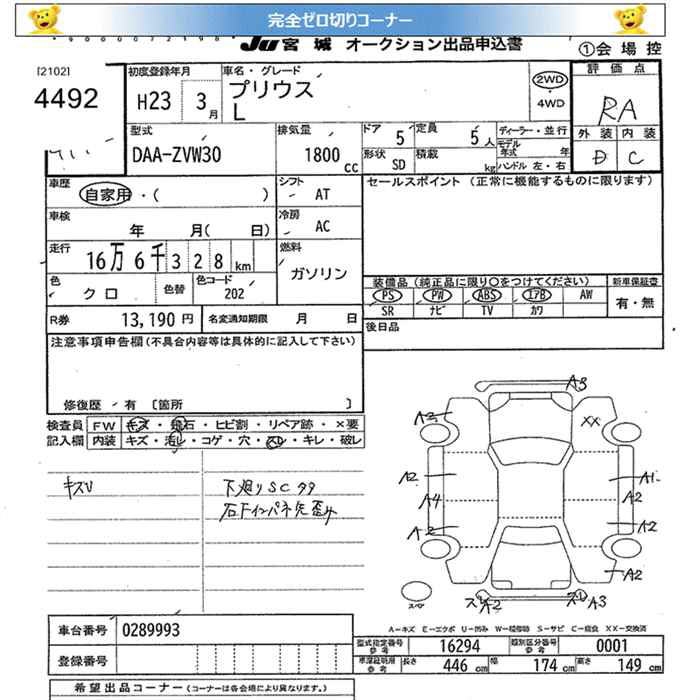 完全ゼロ切りコーナー
JU 宮城 オークション出品申込書
①会場控
[2102]
4492
初度登録年月
H23 3月
車名・グレード
プリウス
L
2WD
4WD
評価点
RA
外装 内装
D C
型式
DAA-ZVW30
排気量
1800 cc
ドア 5
定員 5人
形状 SD
積載 kg
ディーラー・並行
モデル年式 年
ハンドル 左・右
車歴
自家用・( )
シフト AT
車検
年 月( 日)
冷房 AC
走行
16万6千328km
燃料 ガソリン
色 クロ
色替
色コード 202
R券 13,190円
名変通知期限 月 日
セールスポイント (正常に機能するものに限ります)
装備品 (純正品に限り〇をつけてください)
新車保証書
PS PW ABS エアB AW
SR ナビ TV カワ
有・無
後日品
注意事項申告欄(不具合内容等は具体的に記入して下さい)
修復歴 有 〔箇所 〕
検査員 FW キズ・飛石・ヒビ割・リペア跡・×要
記入欄 内装 キズ・汚レ・コゲ・穴・スレ・キレ・破レ
キズU
下廻りSC
A3
A2 XX
A2 A1
A4 A2
A2 A2
A2
スレA2 スレA3
スペア
A-キズ E-エクボ U-凹み W-補修跡 S-サビ C-腐食 XX-交換済
車台番号 0289993
登録番号
型式指定番号 16294
類別区分番号 0001
車庫証明用
長さ 446 cm
幅 174 cm
高さ 149 cm
希望出品コーナー(コーナーは各会場により異なります。)